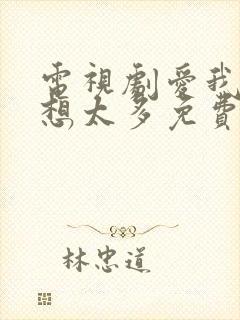 電視劇愛我
想太多免費
林忠道